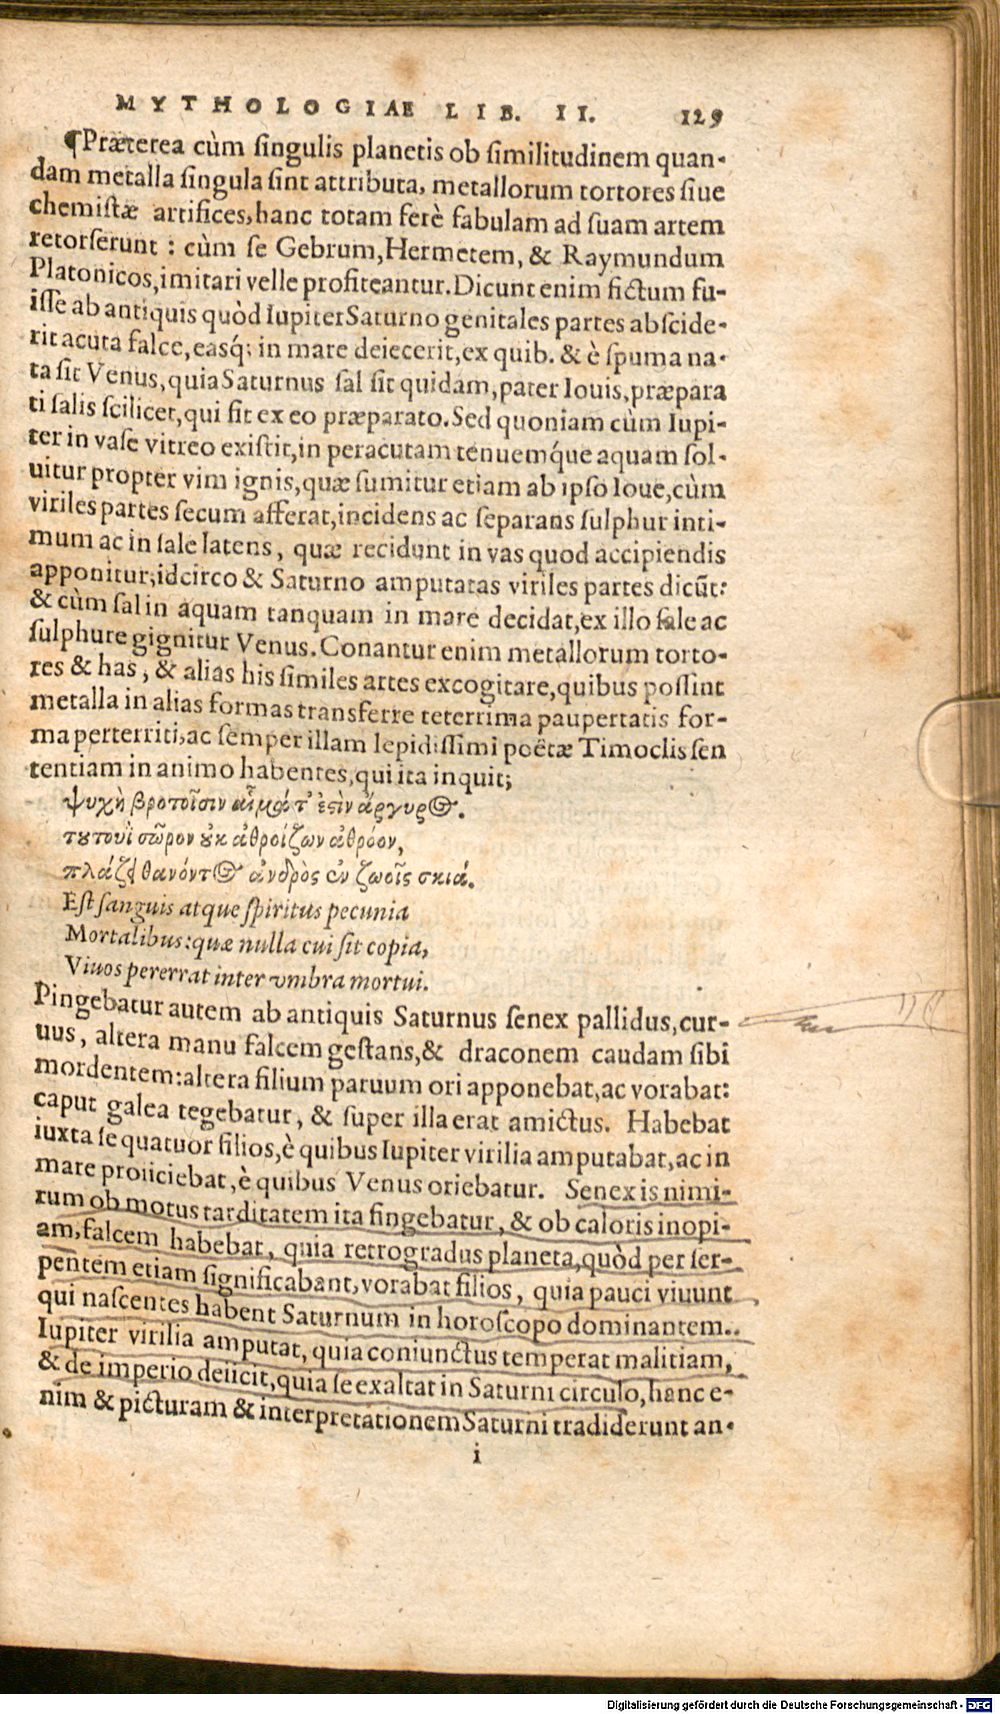 MYTHOLOGIAE LIB. II. 129
¶Præterea cùm ſingulis planetis ob ſimilitudinem quan-
dam metalla ſingula ſint attributa, metallorum tortores ſiue
chemiſtæ artifices, hanc totam ferè fabulam ad ſuam artem
retorſerunt : cùm ſe Gebrum, Hermetem, & Raymundum
Platonicos, imitari velle profiteantur. Dicunt enim fictum fu-
iſſe ab antiquis quòd Iupiter Saturno genitales partes abſcide-
rit acuta falce, eaſq́; in mare deiecerit, ex quib. & è ſpuma na-
ta ſit Venus, quia Saturnus ſal ſit quidam, pater Iouis, præpara
ti ſalis ſcilicet, qui ſit ex eo præparato. Sed quoniam cùm Iupi-
ter in vaſe vitreo exiſtit, in peracutam tenuemq́ue aquam ſol-
uitur propter vim ignis, quæ ſumitur etiam ab ipſo Ioue, cùm
viriles partes ſecum afferat, incidens ac ſeparans ſulphur inti-
mum ac in ſale latens, quæ recidunt in vas quod accipiendis
apponitur; idcirco & Saturno amputatas viriles partes dicũt:
& cùm ſal in aquam tanquam in mare decidat, ex illo ſale ac
ſulphure gignitur Venus. Conantur enim metallorum torto-
res & has, & alias his ſimiles artes excogitare, quibus poſſint
metalla in alias formas transferre teterrima paupertatis for-
ma perterriti, ac ſemper illam lepidiſſimi poëtæ Timoclis ſen
tentiam in animo habentes, qui ita inquit;
ψυχὴ βροτοῖσιν αἷμά τ' ἐϛὶν ἄργυρος.
τȣτουῒ σῶρον ȣκ ἀθροίζων ἀθρόον,
πλάζει θανόντος ἀνδρὸς ἐν ζωοῖς σκιά.
Eſt ſanguis atque ſpiritus pecunia
Mortalibus: quæ nulla cui ſit copia,
Viuos pererrat inter vmbra mortui.
Pingebatur autem ab antiquis Saturnus ſenex pallidus, cur-
uus, altera manu falcem geſtans, & draconem caudam ſibi
mordentem: altera filium paruum ori apponebat, ac vorabat:
caput galea tegebatur, & ſuper illa erat amictus. Habebat
iuxta ſe quatuor filios, è quibus Iupiter virilia amputabat, ac in
mare proiiciebat, è quibus Venus oriebatur. Senex is nimi-
rum ob motus tarditatem ita fingebatur, & ob caloris inopi-
am, falcem habebat, quia retrogradus planeta, quòd per ſer-
pentem etiam ſignificabant, vorabat filios, quia pauci viuunt
qui naſcentes habent Saturnum in horoſcopo dominantem..
Iupiter virilia amputat, quia coniunctus temperat malitiam,
& de imperio deiicit, quia ſe exaltat in Saturni circulo, hanc e-
nim & picturam & interpretationem Saturni tradiderunt an-
i
Digitalisierung gefördert durch die Deutsche Forschungsgemeinschaft - DFG